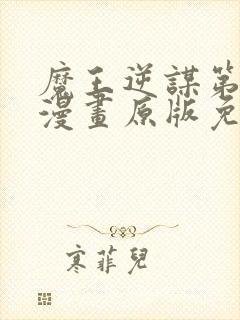 魔王逆謀第
漫畫原版免
寒菲兒